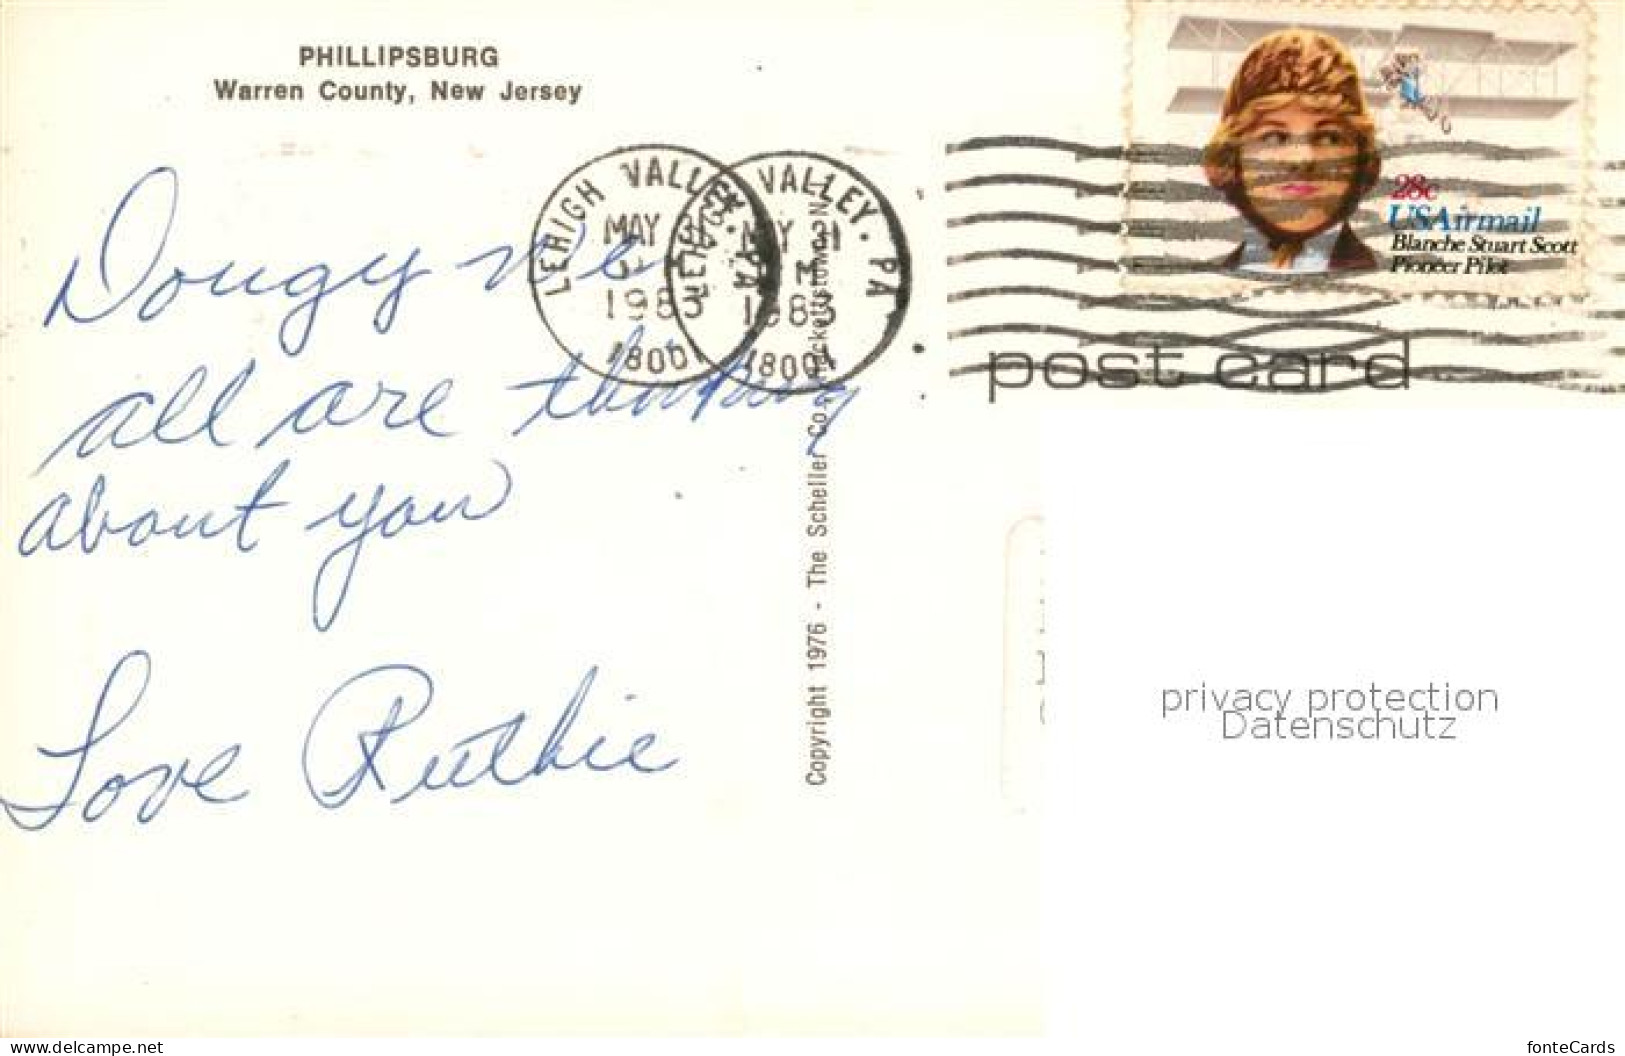 PHILLIPSBURG
Warren County, New Jersey
Dougy we
all are thinking
about you
Love Ruthie
LEHIGH VALLEY. PA
MAY 21
1983
1800
LEHIGH VALLEY. PA
MAY 21
1983
1800
Copyright 1976 - The Scheller Co. Hackettstown, N
28c
USAirmail
Blanche Stuart Scott
Pioneer Pilot
post card
privacy protection
Datenschutz
www.delcampe.net
fonteCards